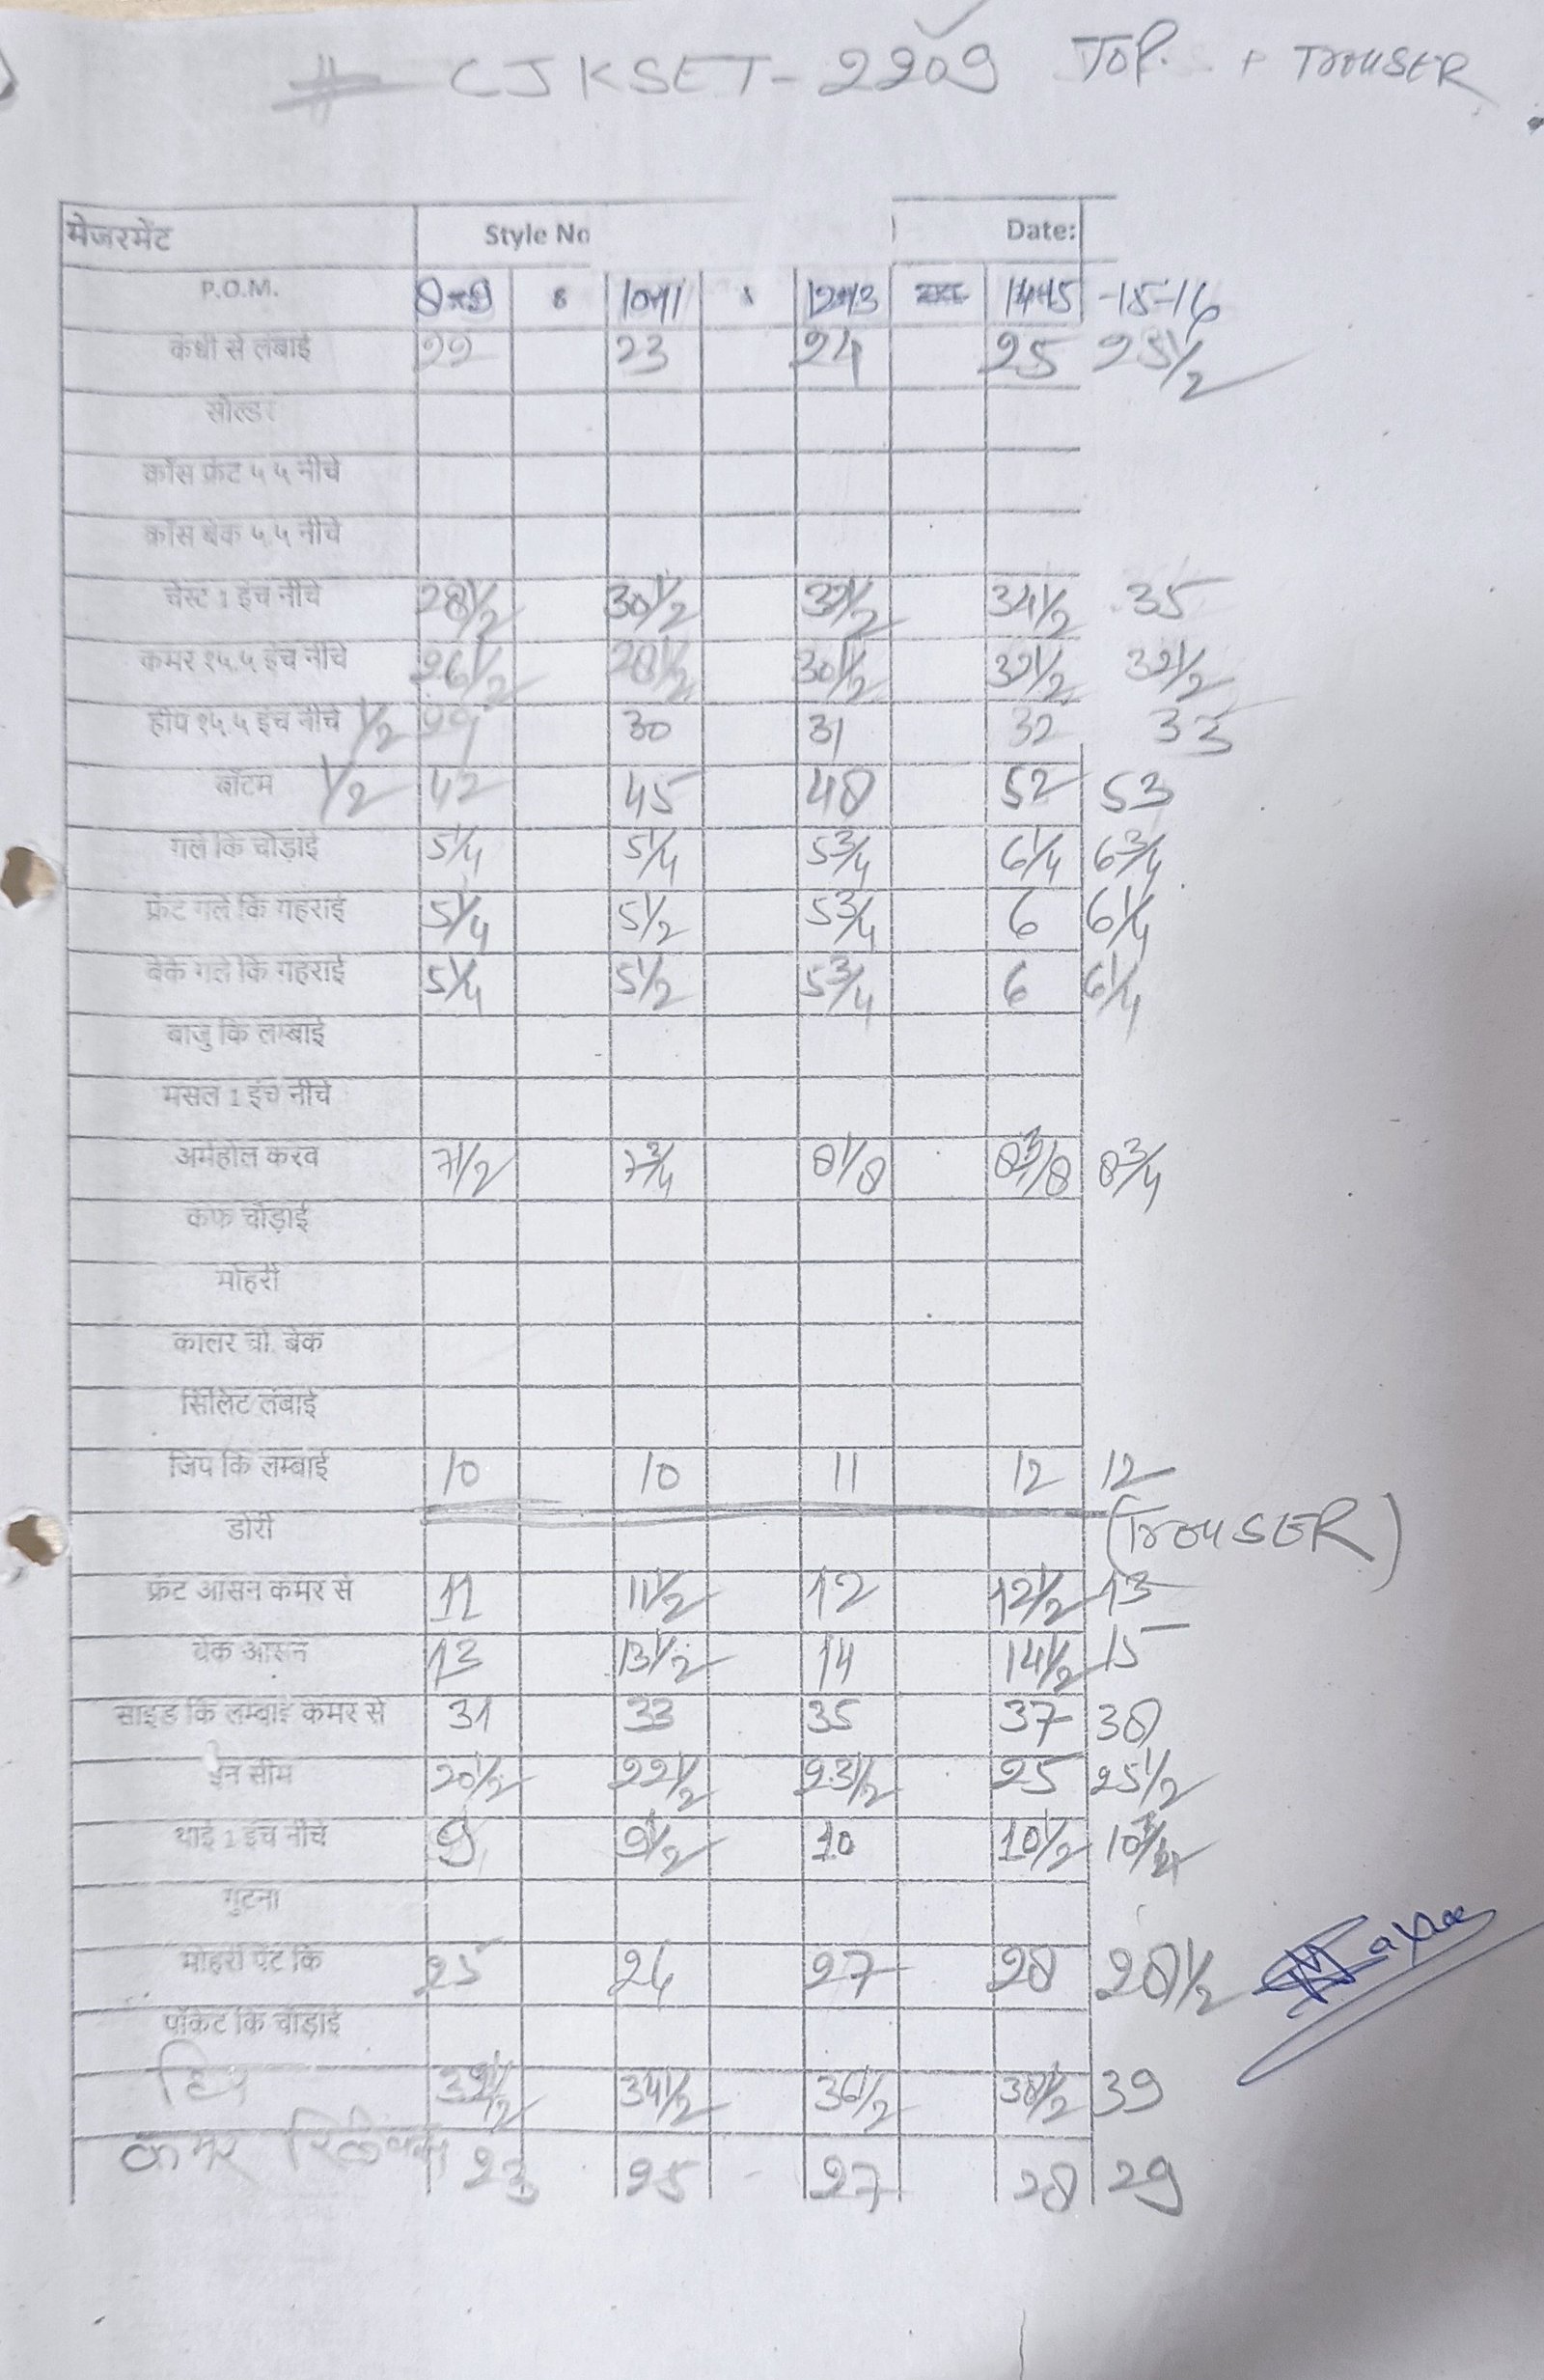 # CJKSET-2209 TOP. + TROUSER
मेजरमेंट Style No Date:
P.O.M. 8-9 10-11 12-13 14-15 -15-16
कंधी से लंबाई 22 23 24 25 25 1/2
सोल्डर
क्रॉस फ्रंट ५ ५ नीचे
क्रॉस बेक ५.५ नीचे
चेस्ट 1 इंच नीचे 28 1/2 30 1/2 32 1/2 34 1/2 35
कमर १५.५ इंच नीचे 26 1/2 28 1/2 30 1/2 32 1/2 32 1/2
हीप १५.५ इंच नीचे 1/2 29 30 31 32 33
बॉटम 1/2 42 45 48 52 53
गले कि चौड़ाई 5 1/4 5 1/4 5 3/4 6 1/4 6 3/4
फ्रंट गले कि गहराई 5 1/4 5 1/2 5 3/4 6 6 1/4
बेक गले कि गहराई 5 1/4 5 1/2 5 3/4 6 6 1/4
बाजु कि लम्बाई
मसल 1 इंच नीचे
अर्महोल करव 7 1/2 7 3/4 8 1/8 8 3/8 8 3/4
कफ चौड़ाई
मोहरी
कालर चौ. बेक
सिलिट लंबाई
जिप कि लम्बाई 10 10 11 12 12
डोरी (TROUSER)
फ्रंट आसन कमर से 11 11 1/2 12 12 1/2 13
बेक आसन 13 13 1/2 14 14 1/2 15
साइड कि लम्बाई कमर से 31 33 35 37 38
ईन सीम 20 1/2 22 1/2 23 1/2 25 25 1/2
थाई 1 इंच नीचे 9 9 1/2 10 10 1/2
गुटना
मोहरी पेंट कि 25 26 27 28 28 1/2
पॉकेट कि चौड़ाई
हिप 32 1/2 34 1/2 36 1/2 38 1/2 39
कमर रिलेक्स 23 25 27 28 29